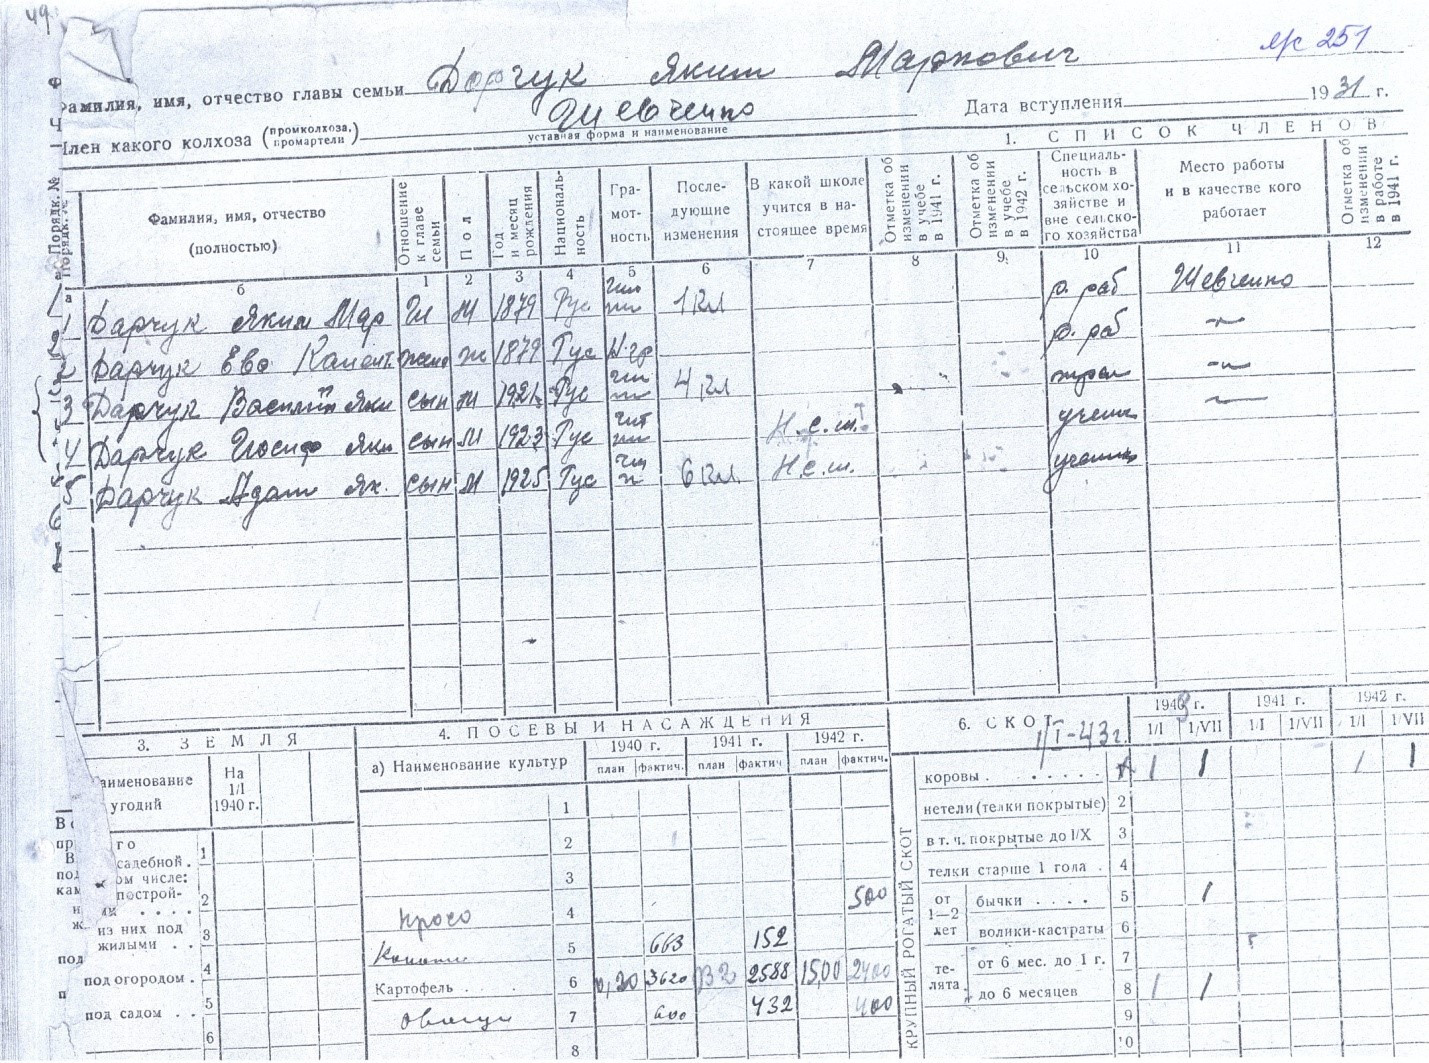 49
л/с 251
Фамилия, имя, отчество главы семьи Дарчук Яким Маркович
Член какого колхоза (промколхоза, промартели) Шевченко
уставная форма и наименование
Дата вступления 1931 г.
1. СПИСОК ЧЛЕНОВ
Порядк. №
Фамилия, имя, отчество (полностью)
Отношение к главе семьи
Пол
Год и месяц рождения
Националь-ность
Гра-мот-ность
После-дующие изменения
В какой школе учится в на-стоящее время
Отметка об изменении в учебе в 1941 г.
Отметка об изменении в учебе в 1942 г.
Специаль-ность в сельском хо-зяйстве и вне сельско-го хозяйства
Место работы и в качестве кого работает
Отметка об изменении в работе в 1941 г.
а б 1 2 3 4 5 6 7 8 9 10 11 12
1 Дарчук Яким Мар Гл м 1879 Рус 1 кл р. раб Шевченко
2 Дарчук Ева жена ж 1879 Рус Н.гр р. раб —"—
3 Дарчук Василий Яки сын м 1921 Рус 4 кл —"—
4 Дарчук Иосиф Яки сын м 1923 Рус Н.с.ш. ученик
5 Дарчук Адам Як. сын м 1925 Рус 6 кл. Н.с.ш. ученик
3. ЗЕМЛЯ
аименование угодий
На 1/I 1940 г.
садебной . 1
ом числе:
построй-
2
из них под
жилыми . . 3
под огородом . 4
под садом . . 5
6
4. ПОСЕВЫ И НАСАЖДЕНИЯ
а) Наименование культур
1940 г. 1941 г. 1942 г.
план фактич. план фактич план фактич.
1
2
3
Просо 4 500
5 663 152
Картофель . . 6 0,20 3620 2588 15,00 2400
Овощи 7 600 432 400
8
6. СКОТ
1/I-43г.
1943 г. 1941 г. 1942 г.
1/I 1/VII 1/I 1/VII 1/I 1/VII
КРУПНЫЙ РОГАТЫЙ СКОТ
коровы . . . . . . 1 1 1 1
нетели (телки покрытые) 2
в т. ч. покрытые до I/X 3
телки старше 1 года . 4
от 1—2 лет
бычки . . . . 5 1
волики-кастраты 6
те-лята
от 6 мес. до 1 г. 7
до 6 месяцев 8 1 1
9
10